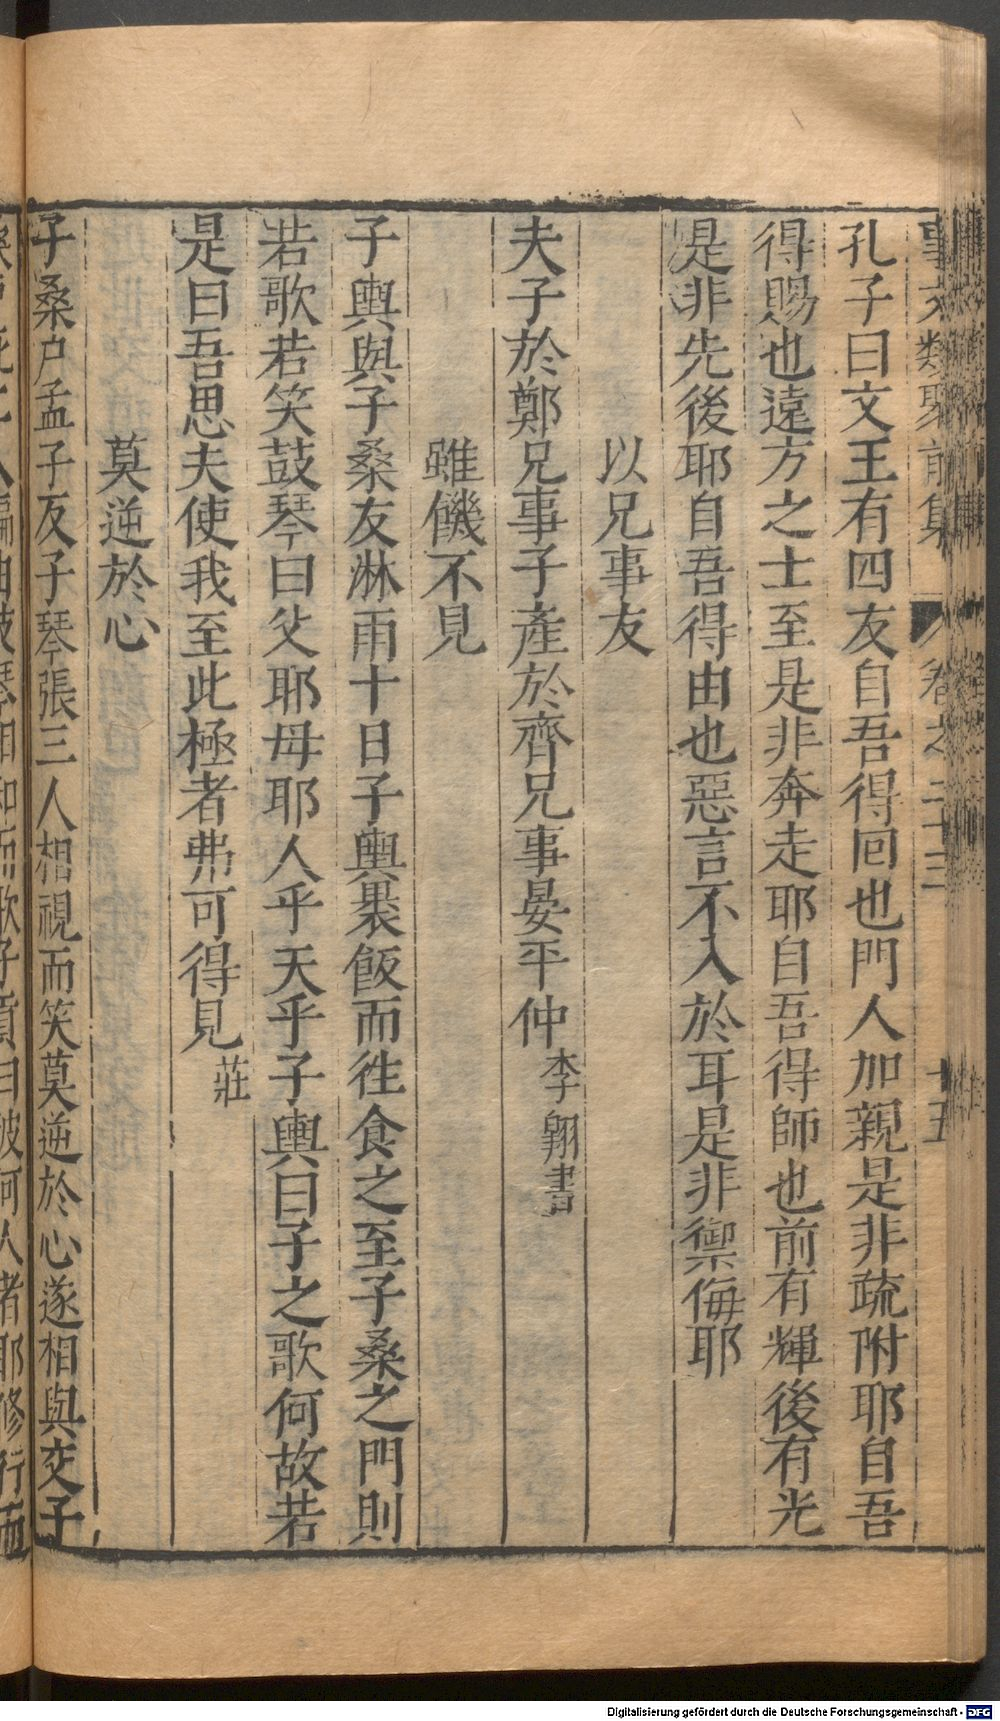 事文類聚前集 卷之二十三 十五
孔子曰文王有四友自吾得回也門人加親是非疏附耶自吾
得賜也遠方之士至是非奔走耶自吾得師也前有輝後有光
是非先後耶自吾得由也惡言不入於耳是非禦侮耶
以兄事友
夫子於鄭兄事子產於齊兄事晏平仲李翱書
雖饑不見
子輿與子桑友淋雨十日子輿褁飯而徃食之至子桑之門則
若歌若笑鼓琴曰父耶母耶人乎天乎子輿曰子之歌何故若
是曰吾思夫使我至此極者弗可得見莊
莫逆於心
子桑户孟子反子琴張三人相視而笑莫逆於心遂相與交子
人編曲鼓琴相和而歌子貢曰彼何人者耶修行而
Digitalisierung gefördert durch die Deutsche Forschungsgemeinschaft - DFG